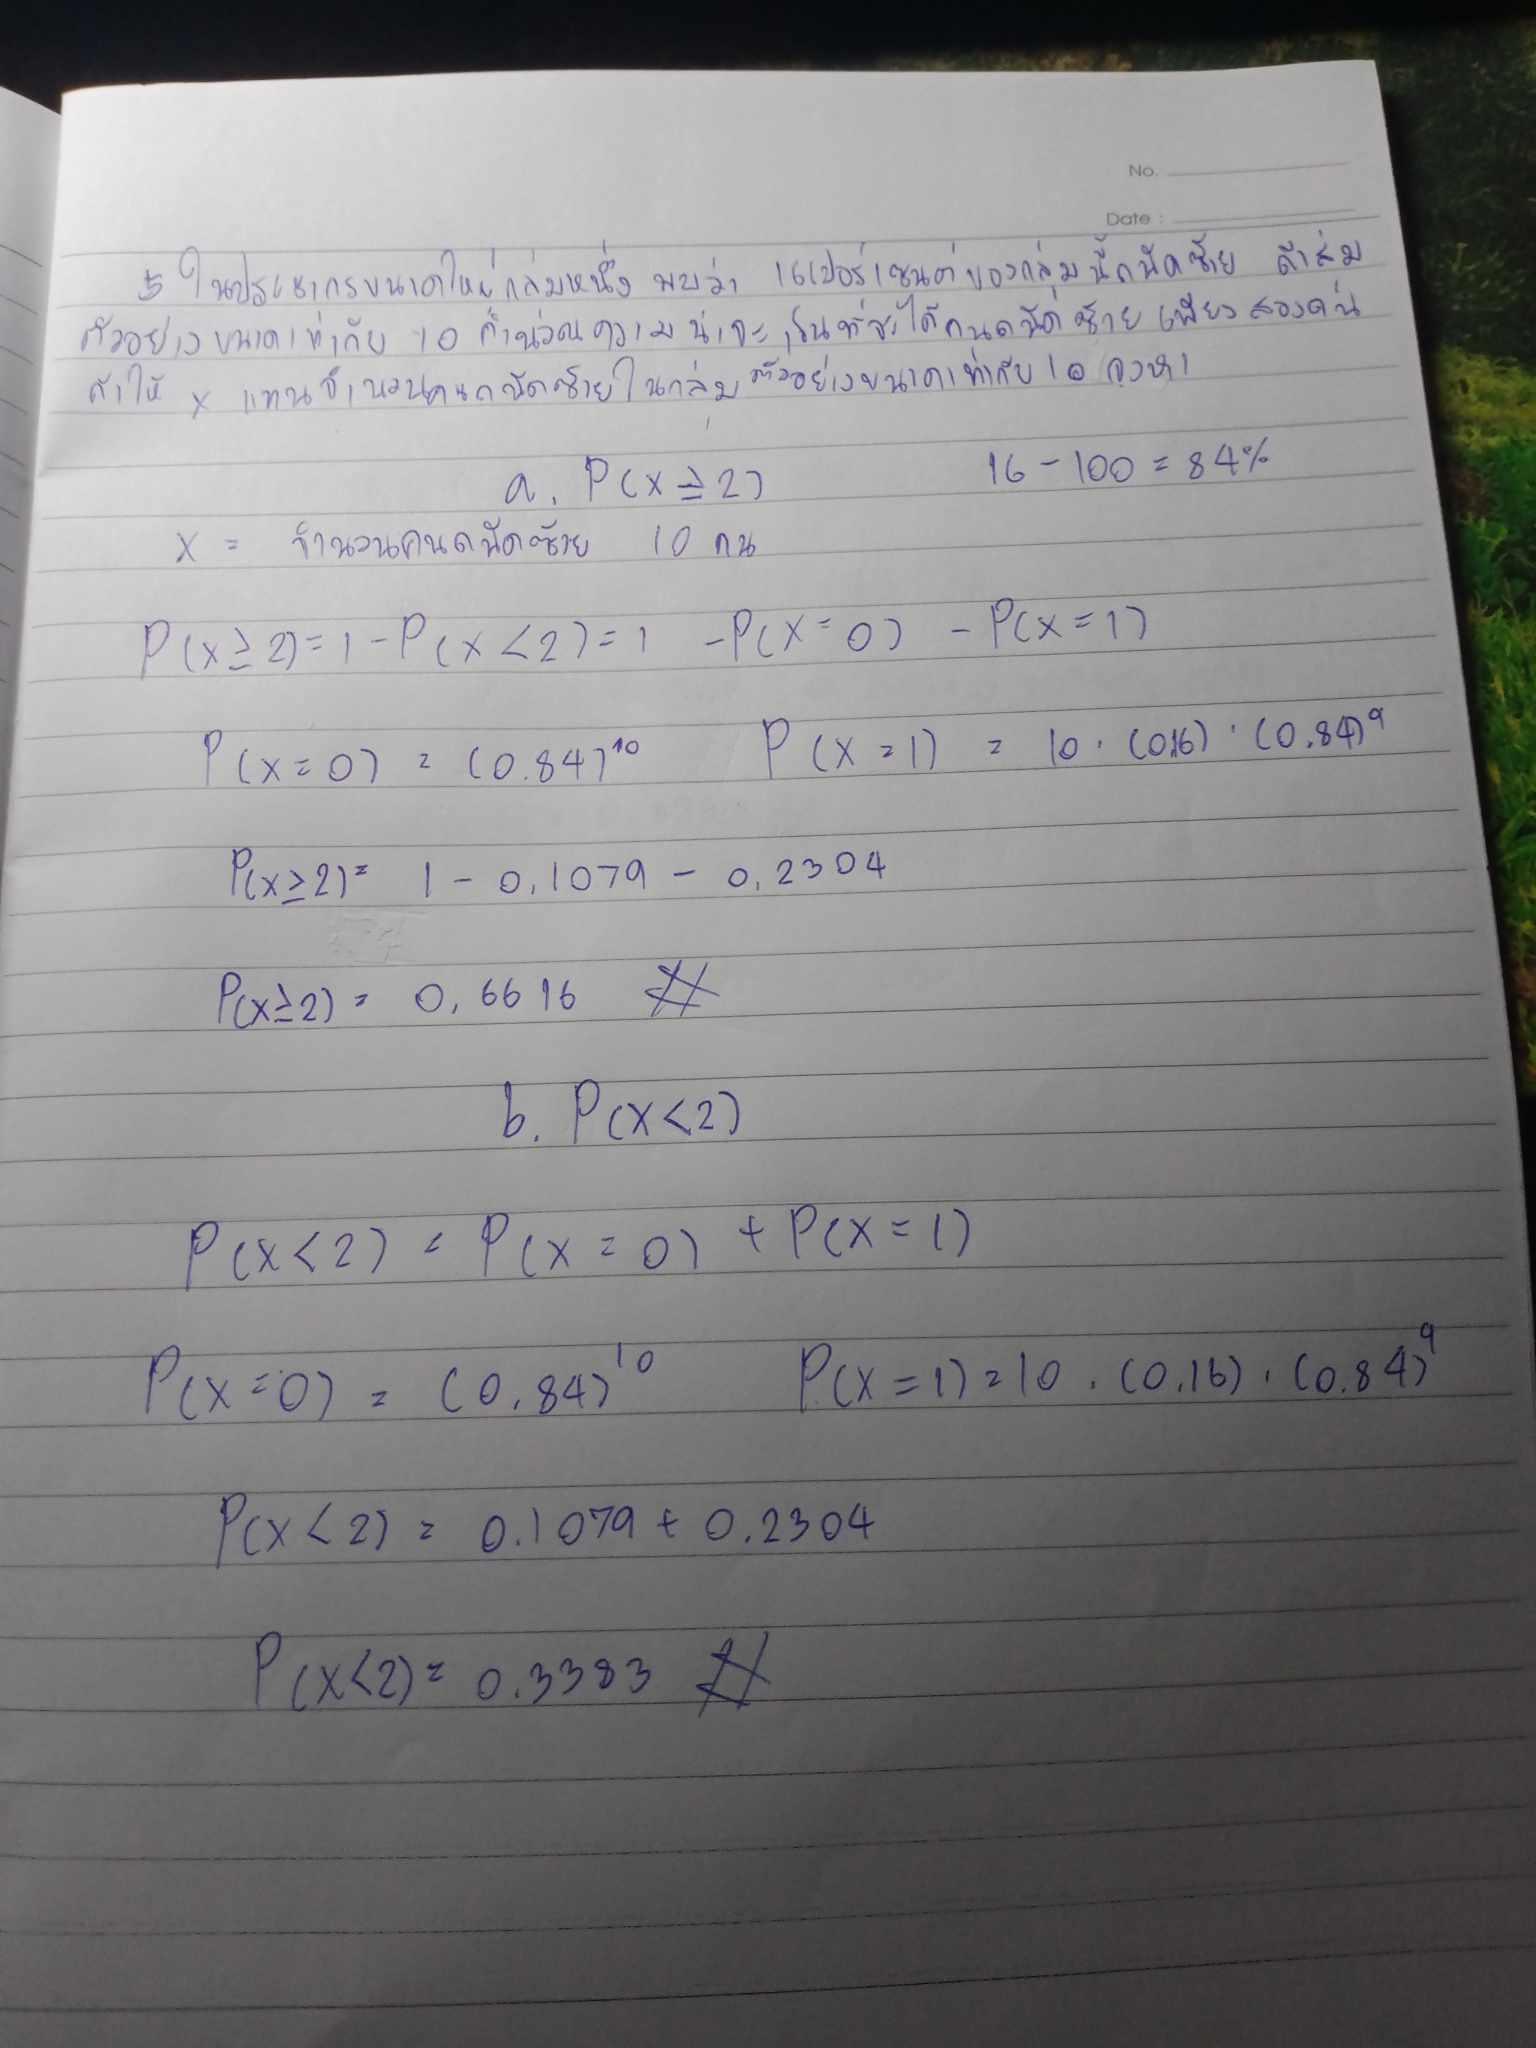 No.
Date :
5 ในประชากรขนาดใหญ่กลุ่มหนึ่ง พบว่า 16เปอร์เซนต์ของกลุ่มนี้ถนัดซ้าย ถ้าสุ่ม
ตัวอย่างขนาดเท่ากับ 10 คำนวณความน่าจะเป็นที่จะได้คนถนัดซ้ายเพียงสองคน
ถ้าให้ x แทนจำนวนคนถนัดซ้ายในกลุ่มตัวอย่างขนาดเท่ากับ 10 จงหา
a. P(x ≥ 2) 16 - 100 = 84%
x = จำนวนคนถนัดซ้าย 10 คน
P(x ≥ 2) = 1 - P(x < 2) = 1 - P(x = 0) - P(x = 1)
P(x = 0) = (0.84)¹⁰ P(x = 1) = 10 . (0.16) . (0.84)⁹
P(x ≥ 2) = 1 - 0.1079 - 0.2304
P(x ≥ 2) = 0.6616 #
b. P(x < 2)
P(x < 2) = P(x = 0) + P(x = 1)
P(x = 0) = (0.84)¹⁰ P(x = 1) = 10 . (0.16) . (0.84)⁹
P(x < 2) = 0.1079 + 0.2304
P(x < 2) = 0.3383 #